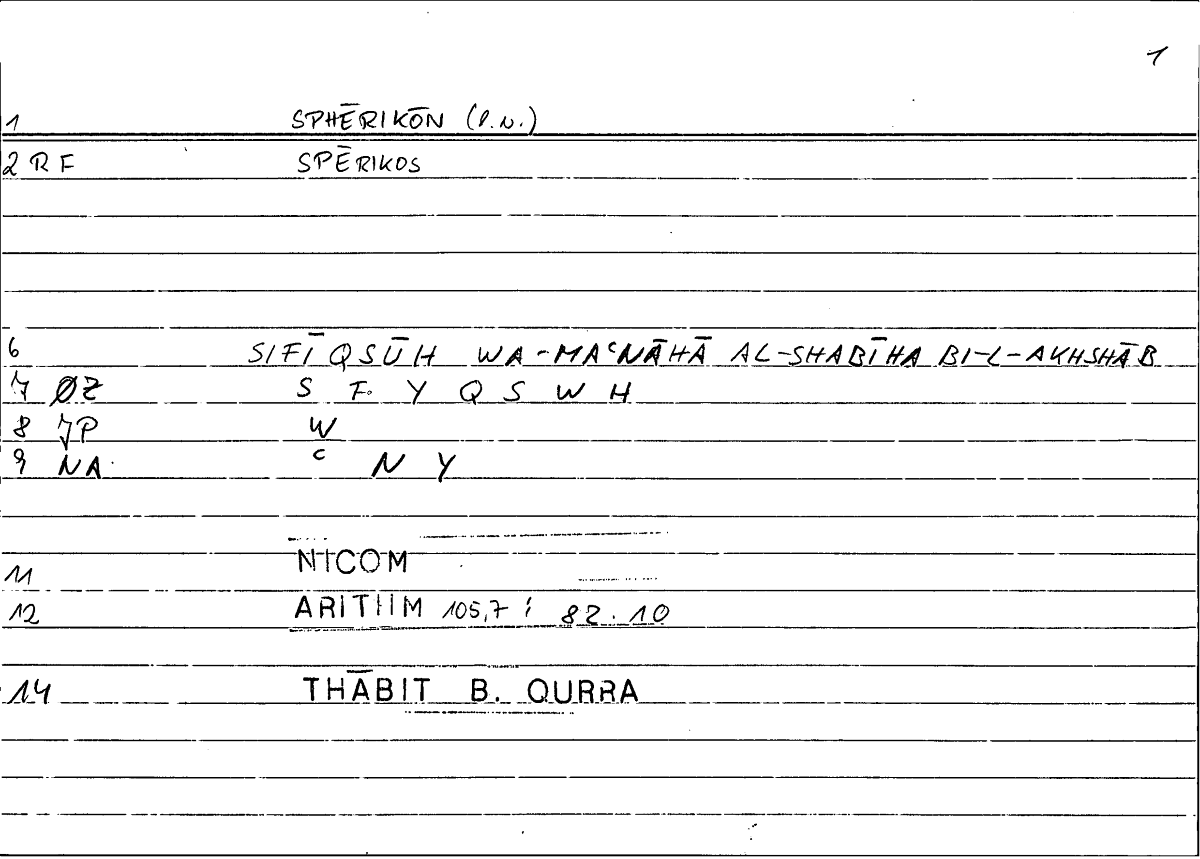 1
1 SPHĒRIKŌN (l.n.)
2 RF SPĒRIKOS
6 SIFĪQSŪH WA-MAᶜNĀHĀ AL-SHABĪHA BI-L-AKHSHĀB
7 ØZ S F Y Q S W H
8 JP W
9 NA ᶜ N Y
11 NICOM
12 ARITHM 105,7; 82.10
14 THĀBIT B. QURRA